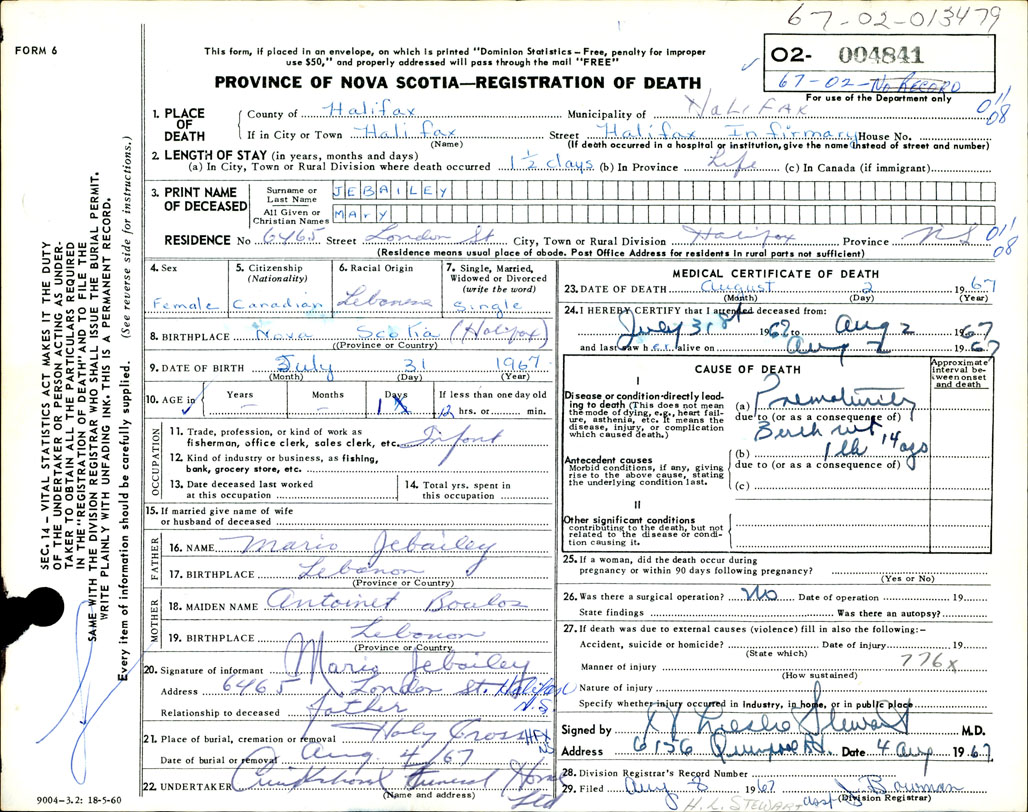 67-02-013479
FORM 6
This form, if placed in an envelope, on which is printed "Dominion Statistics – Free, penalty for improper
use $50," and properly addressed will pass through the mail "FREE"
PROVINCE OF NOVA SCOTIA—REGISTRATION OF DEATH
02- 004841
67-02-No RECORD
For use of the Department only
011
08
1. PLACE OF DEATH
County of Halifax Municipality of HALIFAX
If in City or Town Halifax Street Halifax Infirmary House No.
(Name) (If death occurred in a hospital or institution, give the name instead of street and number)
2. LENGTH OF STAY (in years, months and days)
(a) In City, Town or Rural Division where death occurred 1½ days (b) In Province Life (c) In Canada (if immigrant)
3. PRINT NAME OF DECEASED
Surname or Last Name JEBAILEY
All Given or Christian Names MARY
RESIDENCE No 6465 Street London St City, Town or Rural Division Halifax Province NS
011
08
(Residence means usual place of abode. Post Office Address for residents in rural parts not sufficient)
4. Sex Female
5. Citizenship (Nationality) Canadian
6. Racial Origin Lebanese
7. Single, Married, Widowed or Divorced (write the word) Single
8. BIRTHPLACE Nova Scotia (Halifax)
(Province or Country)
9. DATE OF BIRTH July 31 1967
(Month) (Day) (Year)
10. AGE in Years — Months — Days 1 If less than one day old 12 hrs. or min.
OCCUPATION
11. Trade, profession, or kind of work as
fisherman, office clerk, sales clerk, etc. Infant
12. Kind of industry or business, as fishing,
bank, grocery store, etc.
13. Date deceased last worked
at this occupation
14. Total yrs. spent in
this occupation
15. If married give name of wife
or husband of deceased
FATHER
16. NAME Mario Jebailey
17. BIRTHPLACE Lebanon
(Province or Country)
MOTHER
18. MAIDEN NAME Antoinet Boulos
19. BIRTHPLACE Lebanon
(Province or Country)
20. Signature of informant Mario Jebailey
Address 6465 London St. Halifax N.S.
Relationship to deceased father
21. Place of burial, cremation or removal Holy Cross HFX NS
Date of burial or removal Aug 4/67
22. UNDERTAKER Cruikshank Funeral Home Ltd
(Name and address)
MEDICAL CERTIFICATE OF DEATH
23. DATE OF DEATH August 2 1967
(Month) (Day) (Year)
24. I HEREBY CERTIFY that I attended deceased from:
July 31st 1967 to Aug 2 1967
and last saw her alive on Aug 2 1967
CAUSE OF DEATH
Approximate interval between onset and death
I
Disease or condition-directly leading to death (This does not mean the mode of dying, e.g., heart failure, asthenia, etc. It means the disease, injury, or complication which caused death.)
(a) Prematurity
due to (or as a consequence of)
Birth wt
(b) 1 lb 14 ozs
due to (or as a consequence of)
(c)
Antecedent causes
Morbid conditions, if any, giving rise to the above cause, stating the underlying condition last.
II
Other significant conditions
contributing to the death, but not related to the disease or condition causing it.
25. If a woman, did the death occur during
pregnancy or within 90 days following pregnancy?
(Yes or No)
26. Was there a surgical operation? No Date of operation 19
State findings Was there an autopsy?
27. If death was due to external causes (violence) fill in also the following:–
Accident, suicide or homicide? Date of injury 19
(State which)
Manner of injury 776x
(How sustained)
Nature of injury
Specify whether injury occurred in Industry, in home, or in public place
Signed by Leslie Stewart M.D.
Address 6156 Quinpool Rd. Date 4 Aug 1967
28. Division Registrar's Record Number
29. Filed Aug 8 1967 J Bowman
(Division Registrar)
H. L. STEWART
SEC. 14 – VITAL STATISTICS ACT MAKES IT THE DUTY
OF THE UNDERTAKER OR PERSON ACTING AS UNDER-
TAKER TO OBTAIN ALL THE PARTICULARS REQUIRED
IN THE "REGISTRATION OF DEATH" AND TO FILE THE
SAME WITH THE DIVISION REGISTRAR WHO SHALL ISSUE THE BURIAL PERMIT.
WRITE PLAINLY WITH UNFADING INK. THIS IS A PERMANENT RECORD.
Every item of information should be carefully supplied. (See reverse side for instructions.)
9004–3.2: 18-5-60